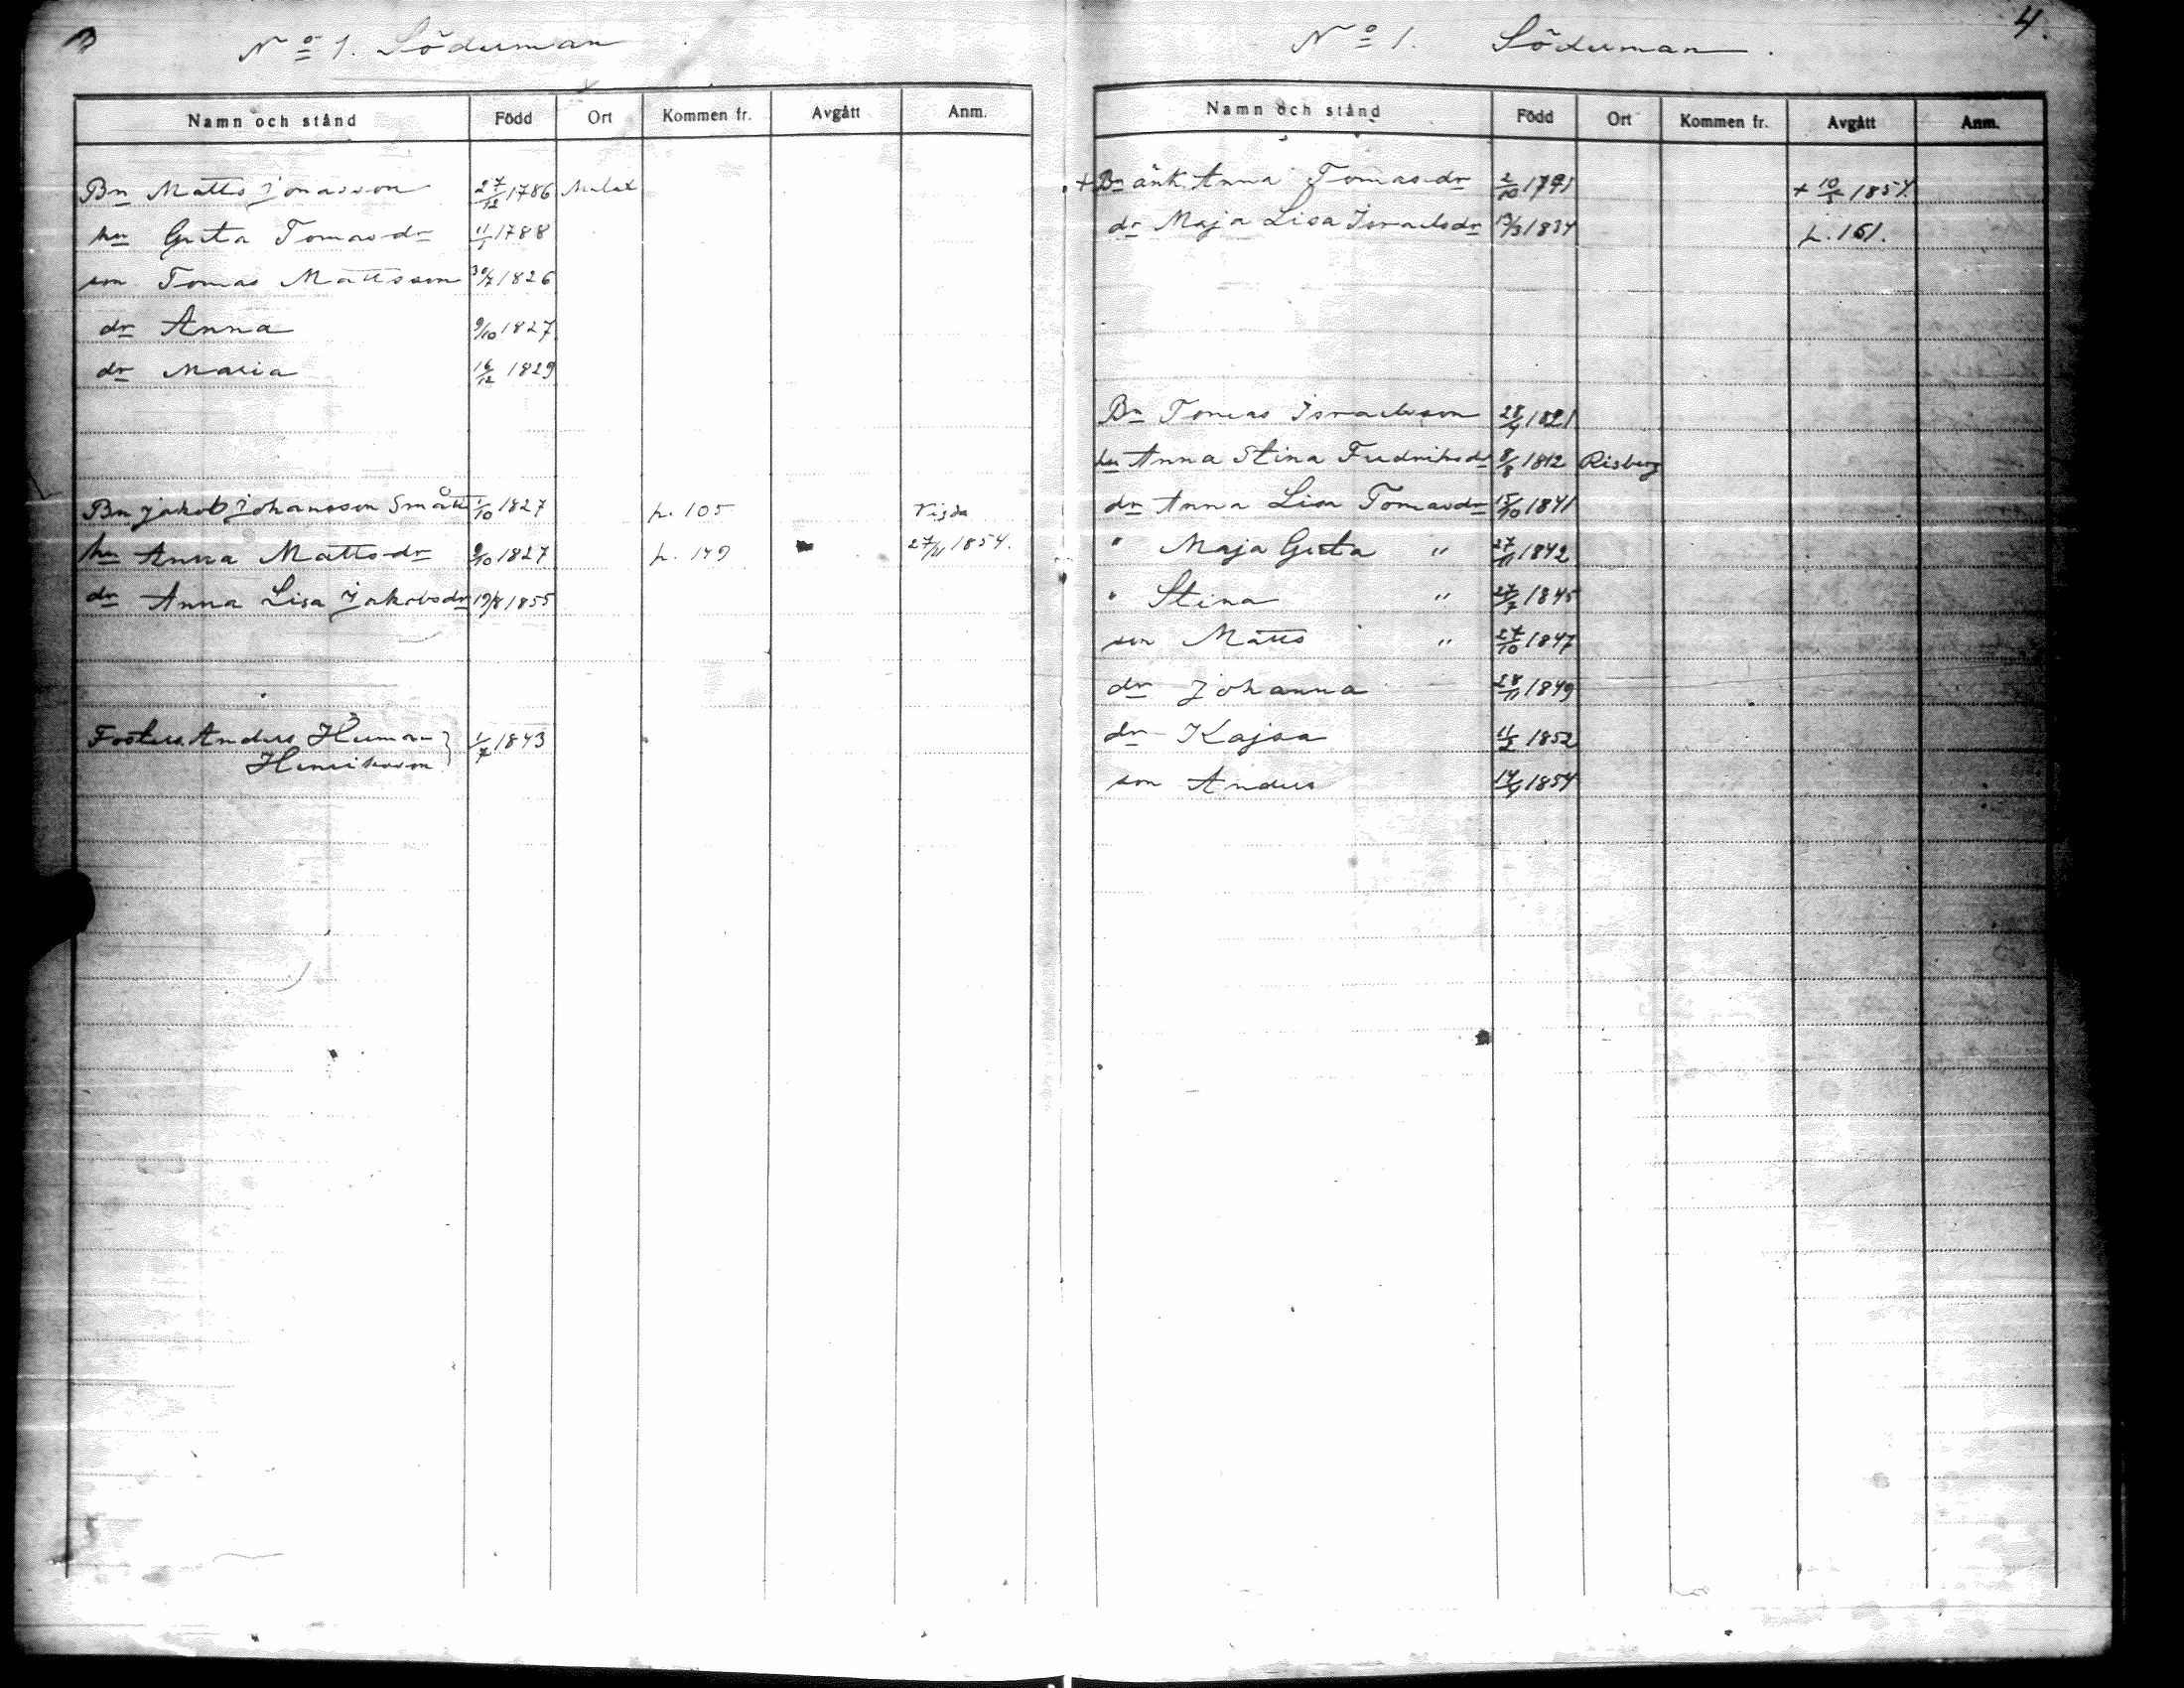 3
No 1. Söderman
Namn och stånd Född Ort Kommen fr. Avgått Anm.
Bn Matts Jonasson 27/12 1786 Malax
hu Greta Tomasdr 11/1 1788
son Tomas Mattsson 30/7 1826
dr Anna 9/10 1827
dr Maria 16/12 1829
Bn Jakob Johansson 1/10 1827 p. 105 Vigda
hu Anna Mattsdr 9/10 1827 p. 149 27/11 1854.
dr Anna Lisa Jakobsdr 19/8 1855
Anders Herman 1/7 1843
Henriksson
No 1. Söderman.
4.
Namn och stånd Född Ort Kommen fr. Avgått Anm.
+ Bn änk. Anna Tomasdr 2/10 1791 + 10/5 1854
dr Maja Lisa Israelsdr 13/3 1834 p. 161.
Bn Tomas Israelsson 28/4 1821
hu Anna Stina Fredriksdr 8/8 1812 Risberg
dr Anna Lisa Tomasdr 15/10 1841
" Maja Greta " 27/11 1842
" Stina " 27/7 1845
son Matts " 27/10 1847
dr Johanna 28/11 1849
dr Kajsa 11/2 1852
son Anders 14/4 1854